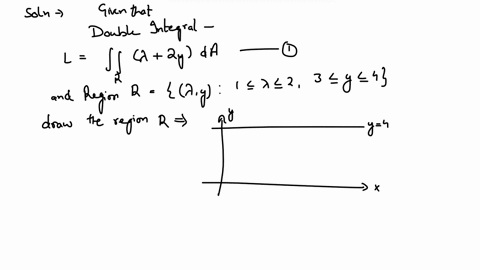 Soln → Given that
Double Integral —
L = ∬_R (λ + 2y) dA —— ①
and Region R = {(λ,y) : 1 ≤ λ ≤ 2, 3 ≤ y ≤ 4}
draw the region R ⇒
y
y=4
x